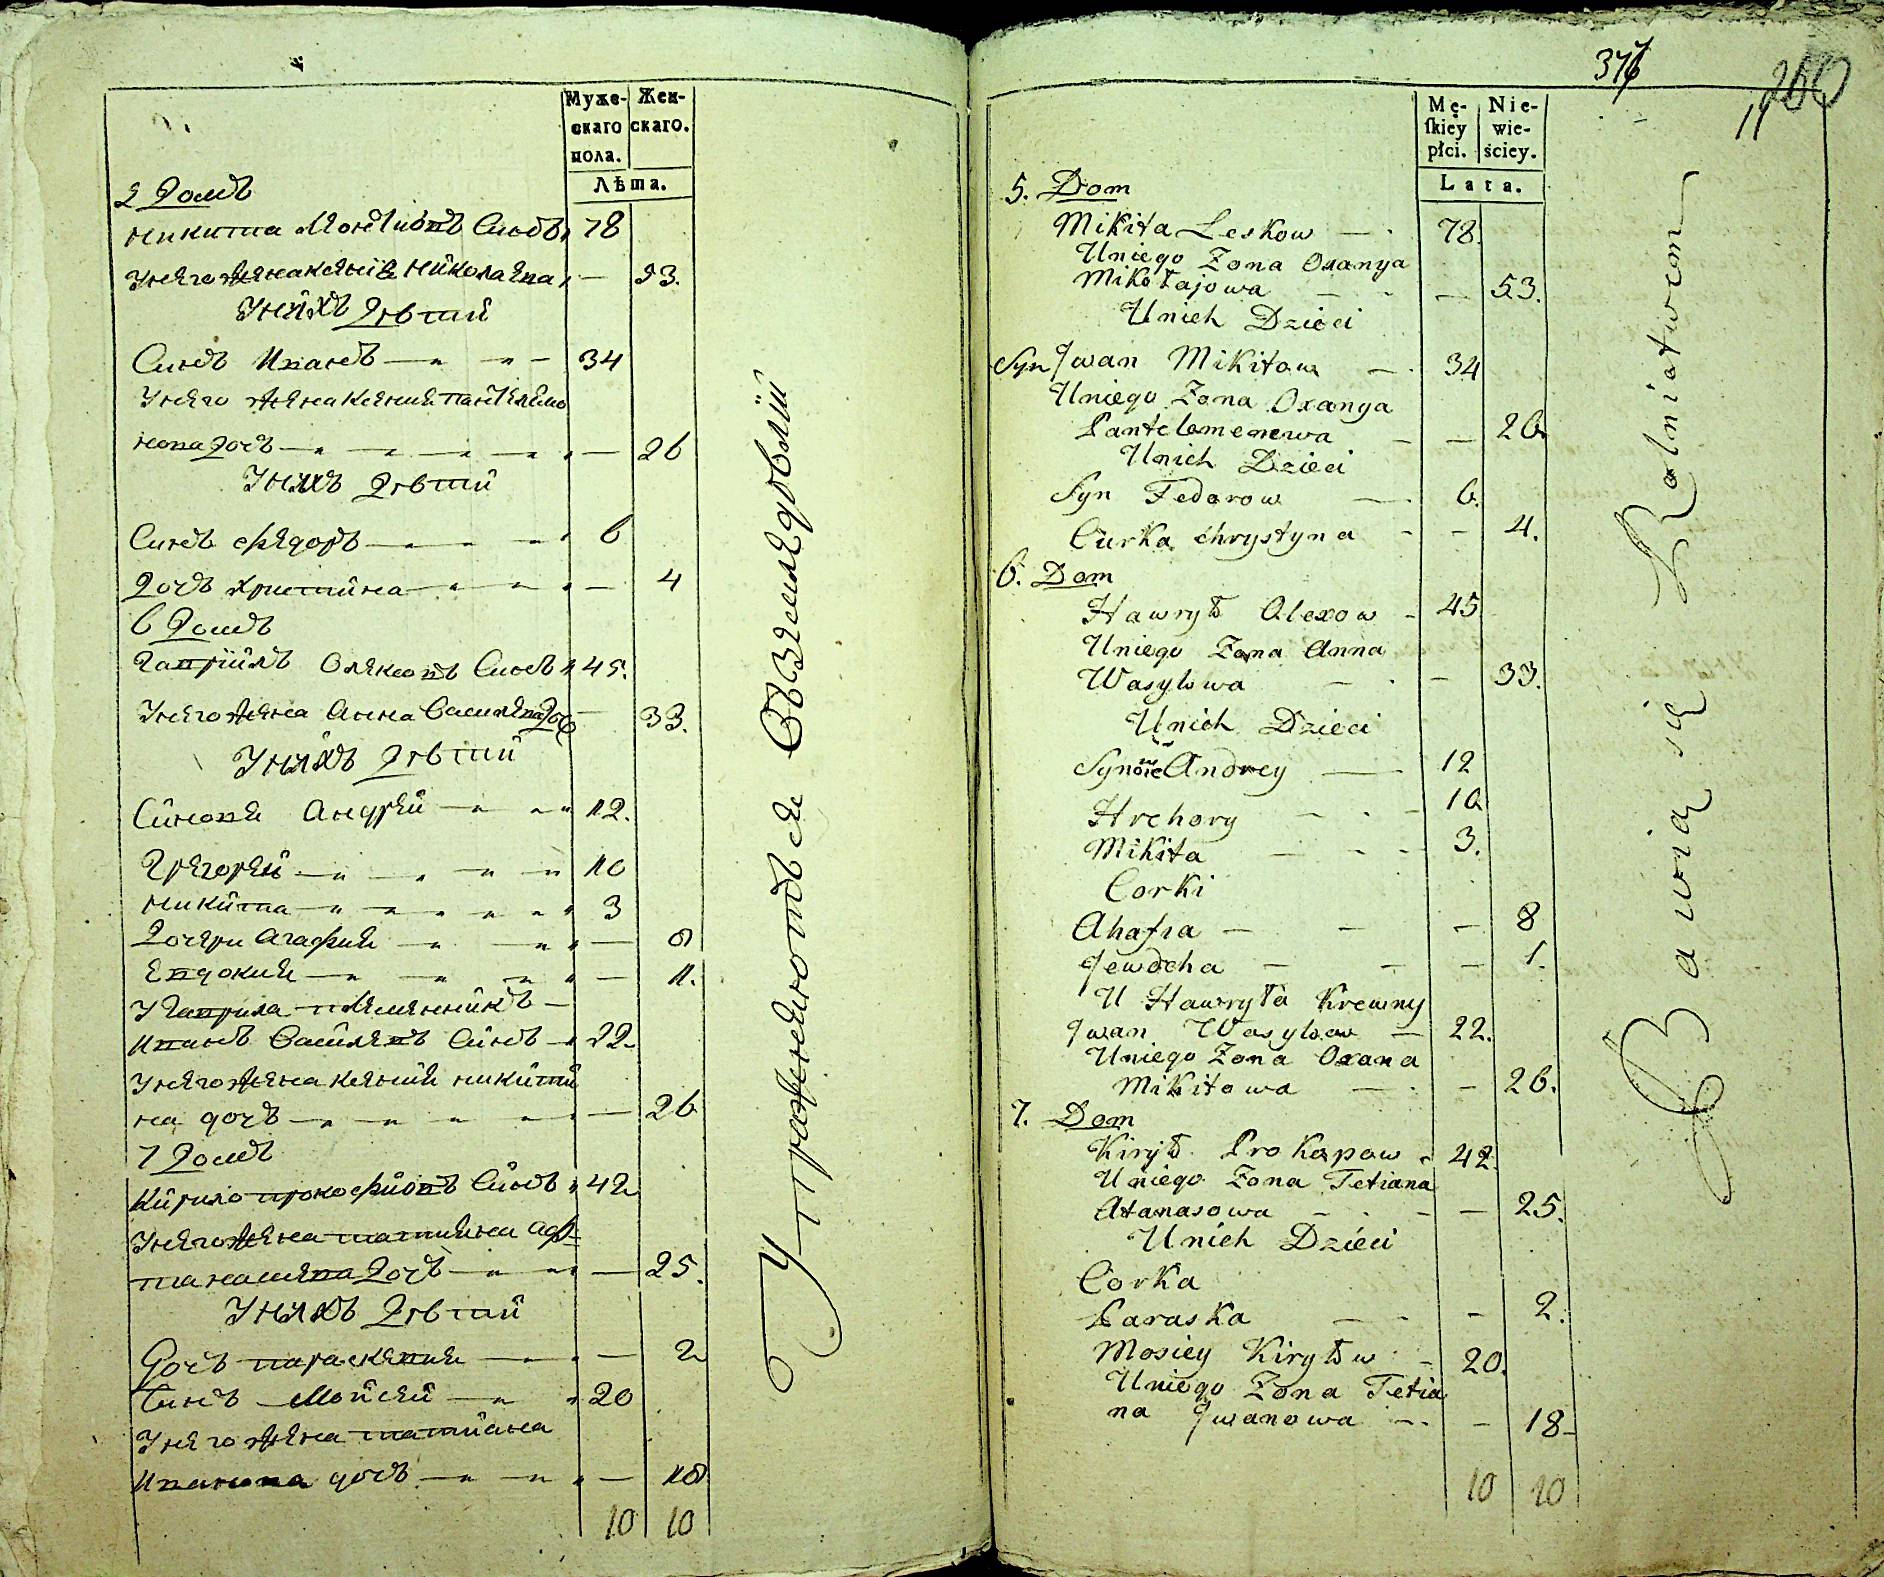 Муже-
скаго
пола.
Жен-
скаго.
Лѣта.
5 Домъ
Никита Сынъ 78
У него жена Ксениѣ Николаева — 53.
У нихъ Дѣти
Сынъ Иванъ — 34
У него жена Ксения Пантелимо
нова дочь — 26
У нихъ Дѣти
Сынъ Федоръ — 6
Дочь Христина — 4
6 Домъ
Гаврiилъ Олексовъ Сынъ 45.
У него жена Анна Василева доч — 33.
У нихъ Дѣти
Синовя Андрей — 12.
Грегорей — 10
Никита — 3
Дочери Агафия — 8
Евдокия — 1.
У Гаврила племенникъ —
Иванъ Василевъ Синъ — 22.
У него жена Ксения Никити
на дочь — 26
7 Домъ
Кирило Прокофиовъ Синъ 42
У него жена Татияна Аф
танасиева дочь — 25.
У нихъ Дѣти
Дочь Параскевия — 2
Синъ Мойсей — 20
У него жена Татиана
Иванова дочь — 18
10 10
Упражняются въ земледѣлiи
376
250
Mę-
ſkiéy
płci.
Nie-
wie-
ściey.
Lata.
5. Dom
Mikita Leskow — 78.
Uniego Zona Oxanya
Mikołajowa — — 53.
Unich Dzieci
Syn Jwan Mikitow — 34
Uniego Zona Oxanya
Pantelemenewa — — 26.
Unich Dzieci
Syn Fedorow — 6.
Curka Chrystyna — — 4.
6. Dom
Hawryło Olexow — 45
Uniego Zona Anna
Wasylowa — — 33.
Unich Dzieci
Synowie Andrey — 12
Hrehory — 10
Mikita — 3.
Corki
Ahafia — — 8
Jewdoha — — 1.
U Hawryła Krewny
Jwan Wasylow — 22.
Uniego Zona Oxana
Mikitowa — — 26.
7. Dom
Kiryło Prokopow — 42.
Uniego Zona Tetiana
Atanasowa — — 25.
Unich Dzieci
Corka
Paraska — — 2.
Mosiey Kiryłow — 20.
Uniego Zona Tetia
na Jwanowa — — 18
10 10
Bawią się Rolnictwem